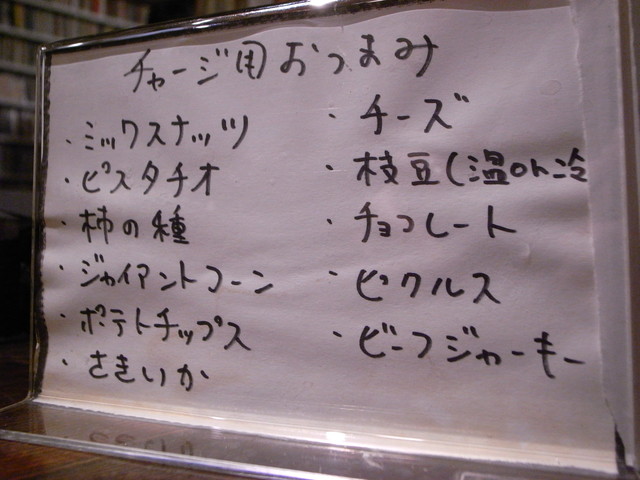 チャージ用おつまみ
・ミックスナッツ
・ピスタチオ
・柿の種
・ジャイアントコーン
・ポテトチップス
・さきいか
・チーズ
・枝豆(温or冷
・チョコレート
・ピクルス
・ビーフジャーキー